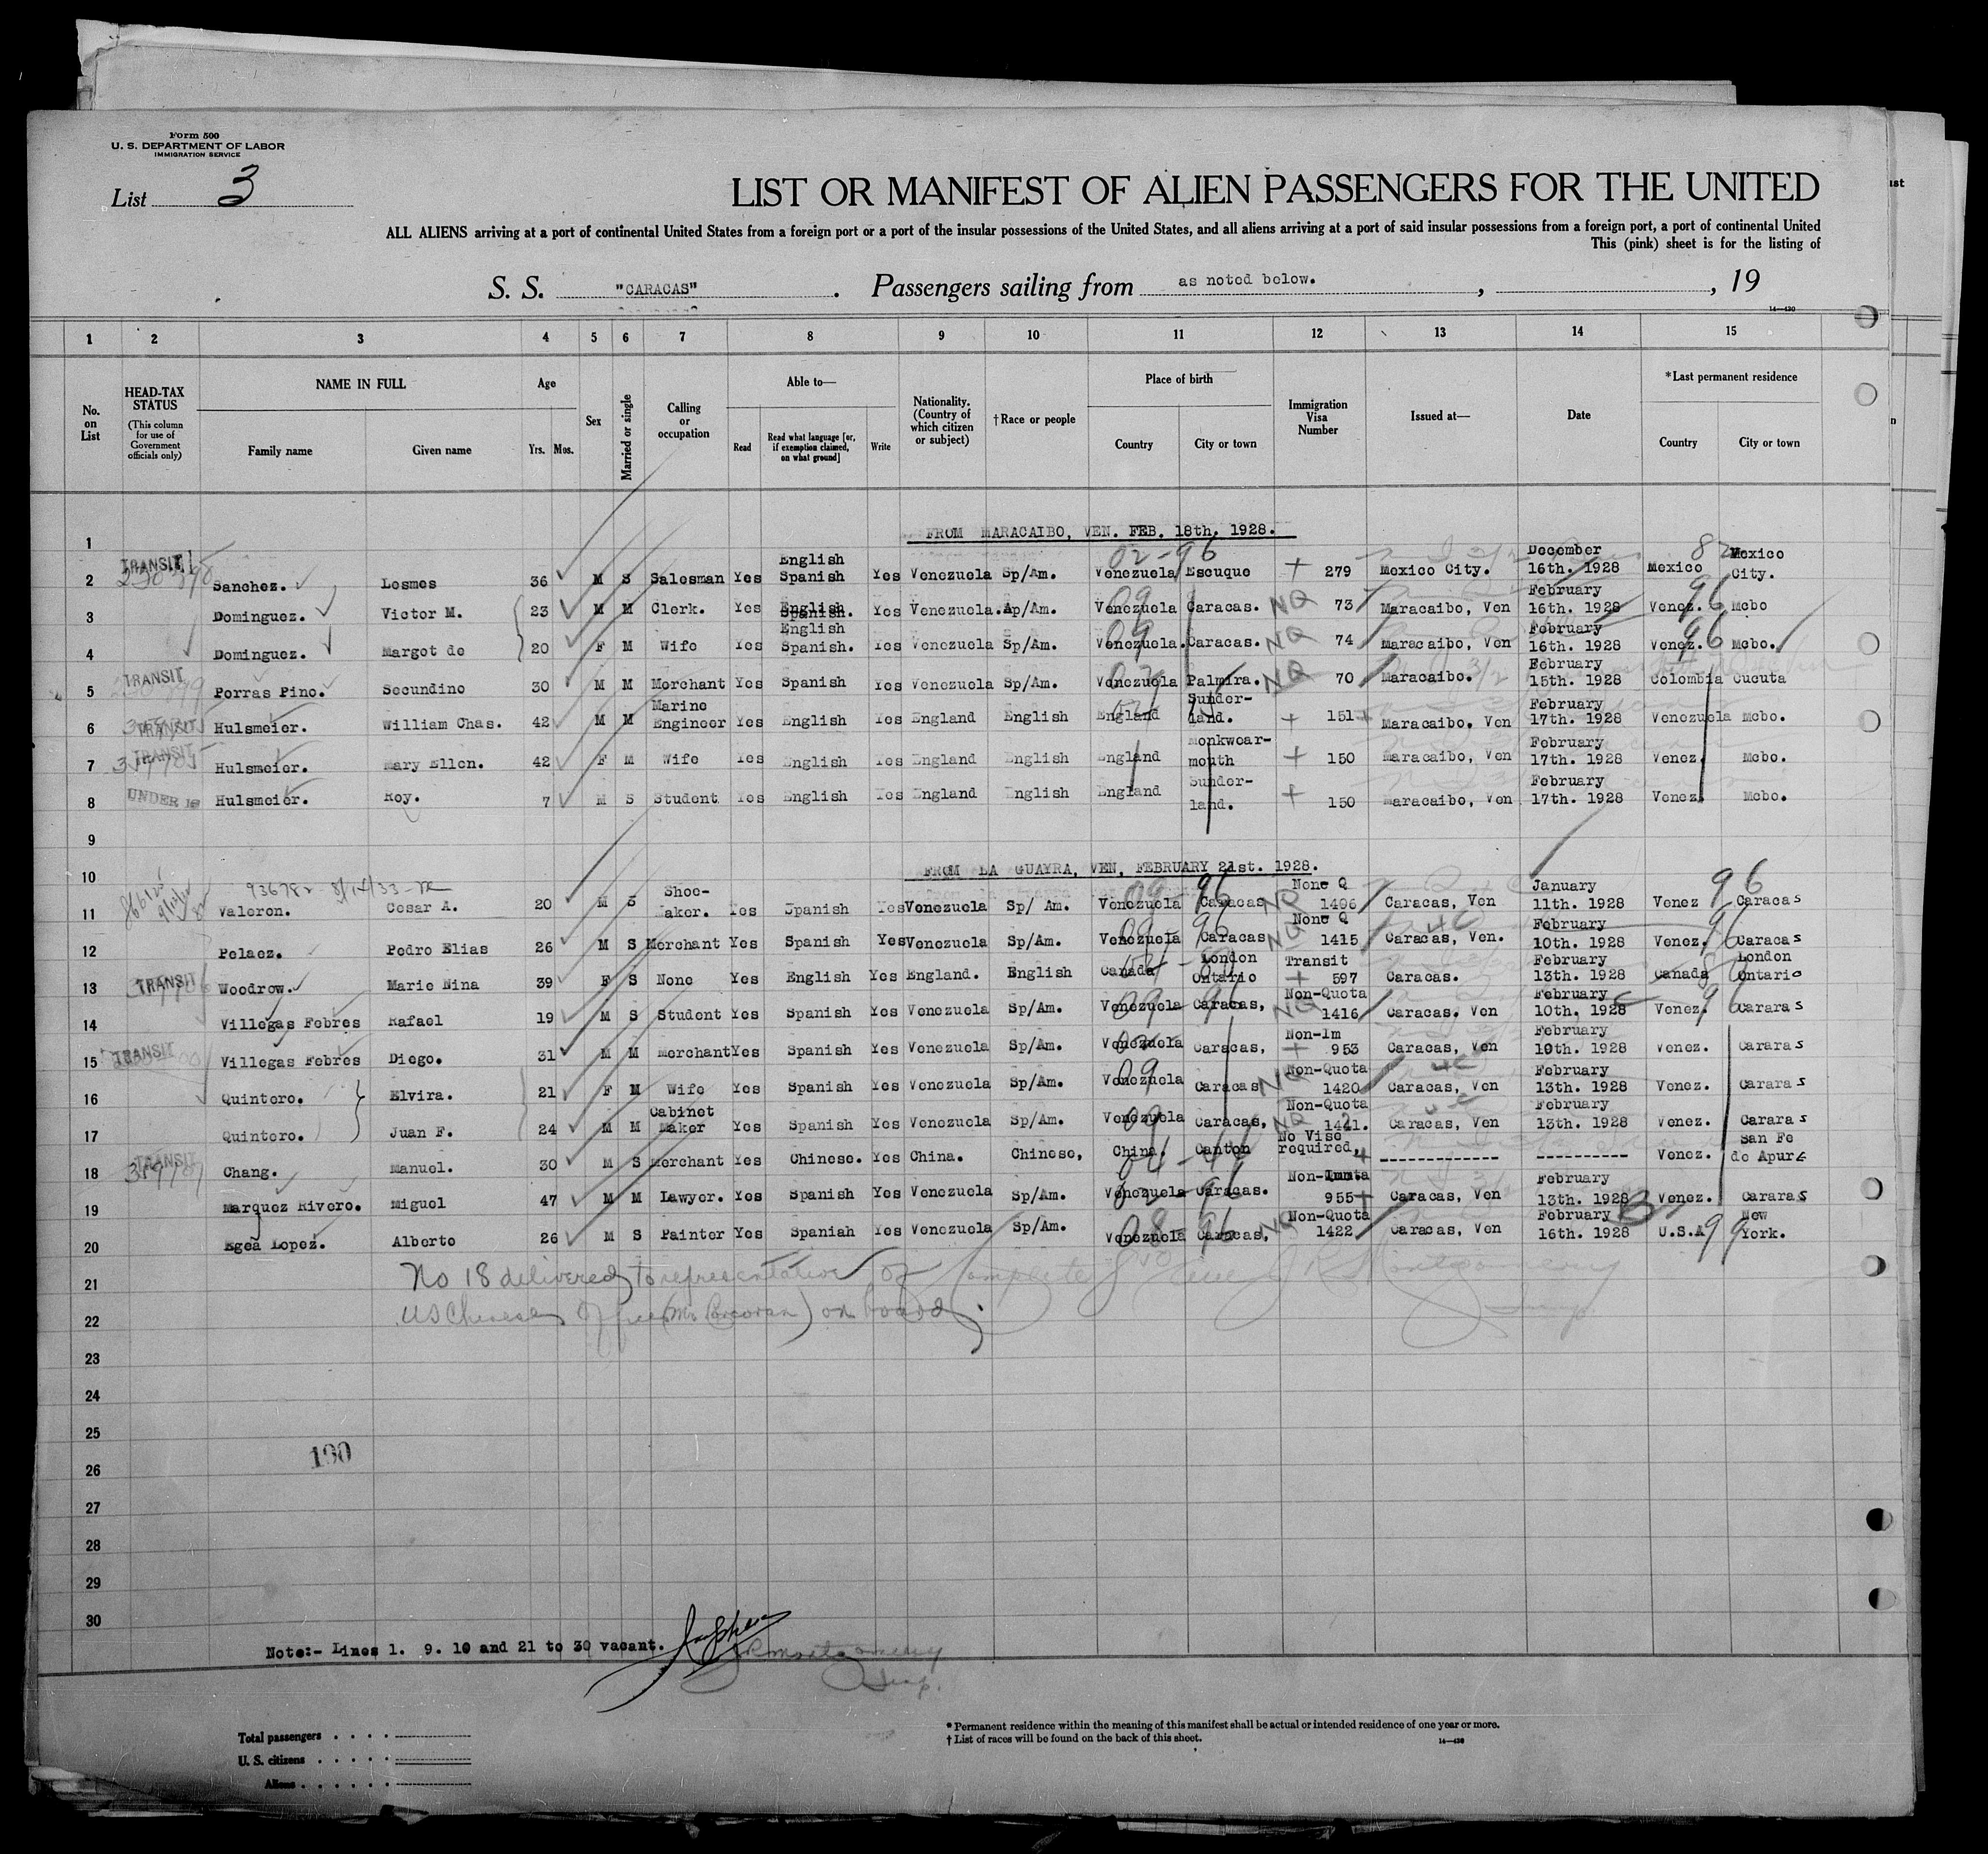 Form 500
U. S. DEPARTMENT OF LABOR
IMMIGRATION SERVICE
List 3
LIST OR MANIFEST OF ALIEN PASSENGERS FOR THE UNITED
ALL ALIENS arriving at a port of continental United States from a foreign port or a port of the insular possessions of the United States, and all aliens arriving at a port of said insular possessions from a foreign port, a port of continental United
This (pink) sheet is for the listing of
S. S. "CARACAS". Passengers sailing from as noted below. , , 19
14—430
1 2 3 4 5 6 7 8 9 10 11 12 13 14 15
No. on List
HEAD-TAX STATUS (This column for use of Government officials only)
NAME IN FULL Family name Given name
Age Yrs. Mos.
Sex
Married or single
Calling or occupation
Able to— Read Read what language [or, if exemption claimed, on what ground] Write
Nationality. (Country of which citizen or subject)
†Race or people
Place of birth Country City or town
Immigration Visa Number
Issued at—
Date
*Last permanent residence Country City or town
1 FROM MARACAIBO, VEN. FEB. 18th, 1928.
2 TRANSIT Sanchez. Losmes 36 M S Salesman Yes English Spanish Yes Venezuela Sp/Am. Venezuela Escuque 02-96 279 Mexico City. December 16th. 1928 Mexico Mexico City.
3 Dominguez. Victor M. 23 M M Clerk. Yes English Spanish. Yes Venezuela. Ap/Am. Venezuela Caracas. 09 NQ 73 Maracaibo, Ven February 16th. 1928 Venez. 96 Mcbo
4 Dominguez. Margot de 20 F M Wife Yes English Spanish. Yes Venezuela Sp/Am. Venezuela. Caracas. 09 NQ 74 Maracaibo, Ven February 16th. 1928 Venez. 96 Mcbo.
5 TRANSIT Porras Pino. Secundino 30 M M Merchant Yes Spanish Yes Venezuela Sp/Am. Venezuela Palmira. NQ 70 Maracaibo. February 15th. 1928 Colombia Cucuta
6 TRANSIT Hulsmeier. William Chas. 42 M M Marine Engineer Yes English Yes England English England Sunderland. 151 Maracaibo. Ven February 17th. 1928 Venezuela Mcbo.
7 TRANSIT Hulsmeier. Mary Ellen. 42 F M Wife Yes English Yes England English England Monkwearmouth 150 Maracaibo, Ven February 17th. 1928 Venez. Mcbo.
8 UNDER 16 Hulsmeier. Roy. 7 M S Student Yes English Yes England English England Sunderland. 150 Maracaibo, Ven February 17th. 1928 Venez. Mcbo.
9
10 FROM LA GUAYRA, VEN, FEBRUARY 21st. 1928.
11 Valeron. Cesar A. 20 M S Shoe-maker. Yes Spanish Yes Venezuela Sp/ Am. Venezuela Caracas 09-96 NQ None Q 1406 Caracas, Ven January 11th. 1928 Venez 96 Caracas
12 Pelaez. Pedro Elias 26 M S Merchant Yes Spanish Yes Venezuela Sp/Am. Venezuela Caracas 09-96 NQ None Q 1415 Caracas, Ven. February 10th. 1928 Venez. 96 Caracas
13 TRANSIT Woodrow. Marie Nina 39 F S None Yes English Yes England. English Canada London Ontario Transit 597 Caracas. February 13th. 1928 Canada London Ontario
14 Villegas Febres Rafael 19 M S Student Yes Spanish Yes Venezuela Sp/Am. Venezuela Caracas, 09-96 NQ Non-Quota 1416 Caracas. Ven February 10th. 1928 Venez. 96 Cararas
15 TRANSIT Villegas Febres Diego. 31 M M Merchant Yes Spanish Yes Venezuela Sp/Am. Venezuela Caracas, Non-Im 953 Caracas, Ven February 10th. 1928 Venez. Cararas
16 Quintero. Elvira. 21 F M Wife Yes Spanish Yes Venezuela Sp/Am. Venezuela Caracas 09 NQ Non-Quota 1420 Caracas, Ven February 13th. 1928 Venez. Cararas
17 Quintero. Juan F. 24 M M Cabinet Maker Yes Spanish Yes Venezuela Sp/Am. Venezuela Caracas, 09 NQ Non-Quota 1421. Caracas, Ven February 13th. 1928 Venez. Cararas
18 TRANSIT Chang. Manuel. 30 M S Merchant Yes Chinese. Yes China. Chinese, China. Canton No Vise required, ------------- ---------- Venez. San Fe de Apure
19 Marquez Rivero. Miguel 47 M M Lawyer. Yes Spanish Yes Venezuela Sp/Am. Venezuela Caracas. 02-96 955 Caracas, Ven February 13th. 1928 Venez. Cararas
20 Egea Lopez. Alberto 26 M S Painter Yes Spanish Yes Venezuela Sp/Am. Venezuela Caracas, 08-96 NQ Non-Quota 1422 Caracas, Ven February 16th. 1928 U.S.A 99 New York.
21 No 18 delivered to representative of Complete Line J R Montgomery
22 US Chinese Office (Mr Corcoran) on board. Insp.
23
24
25
26
190
27
28
29
30
Note:- Lines 1. 9. 10 and 21 to 30 vacant.
JR Montgomery
Insp.
Total passengers
U. S. citizens
Aliens
* Permanent residence within the meaning of this manifest shall be actual or intended residence of one year or more.
† List of races will be found on the back of this sheet.
14—430